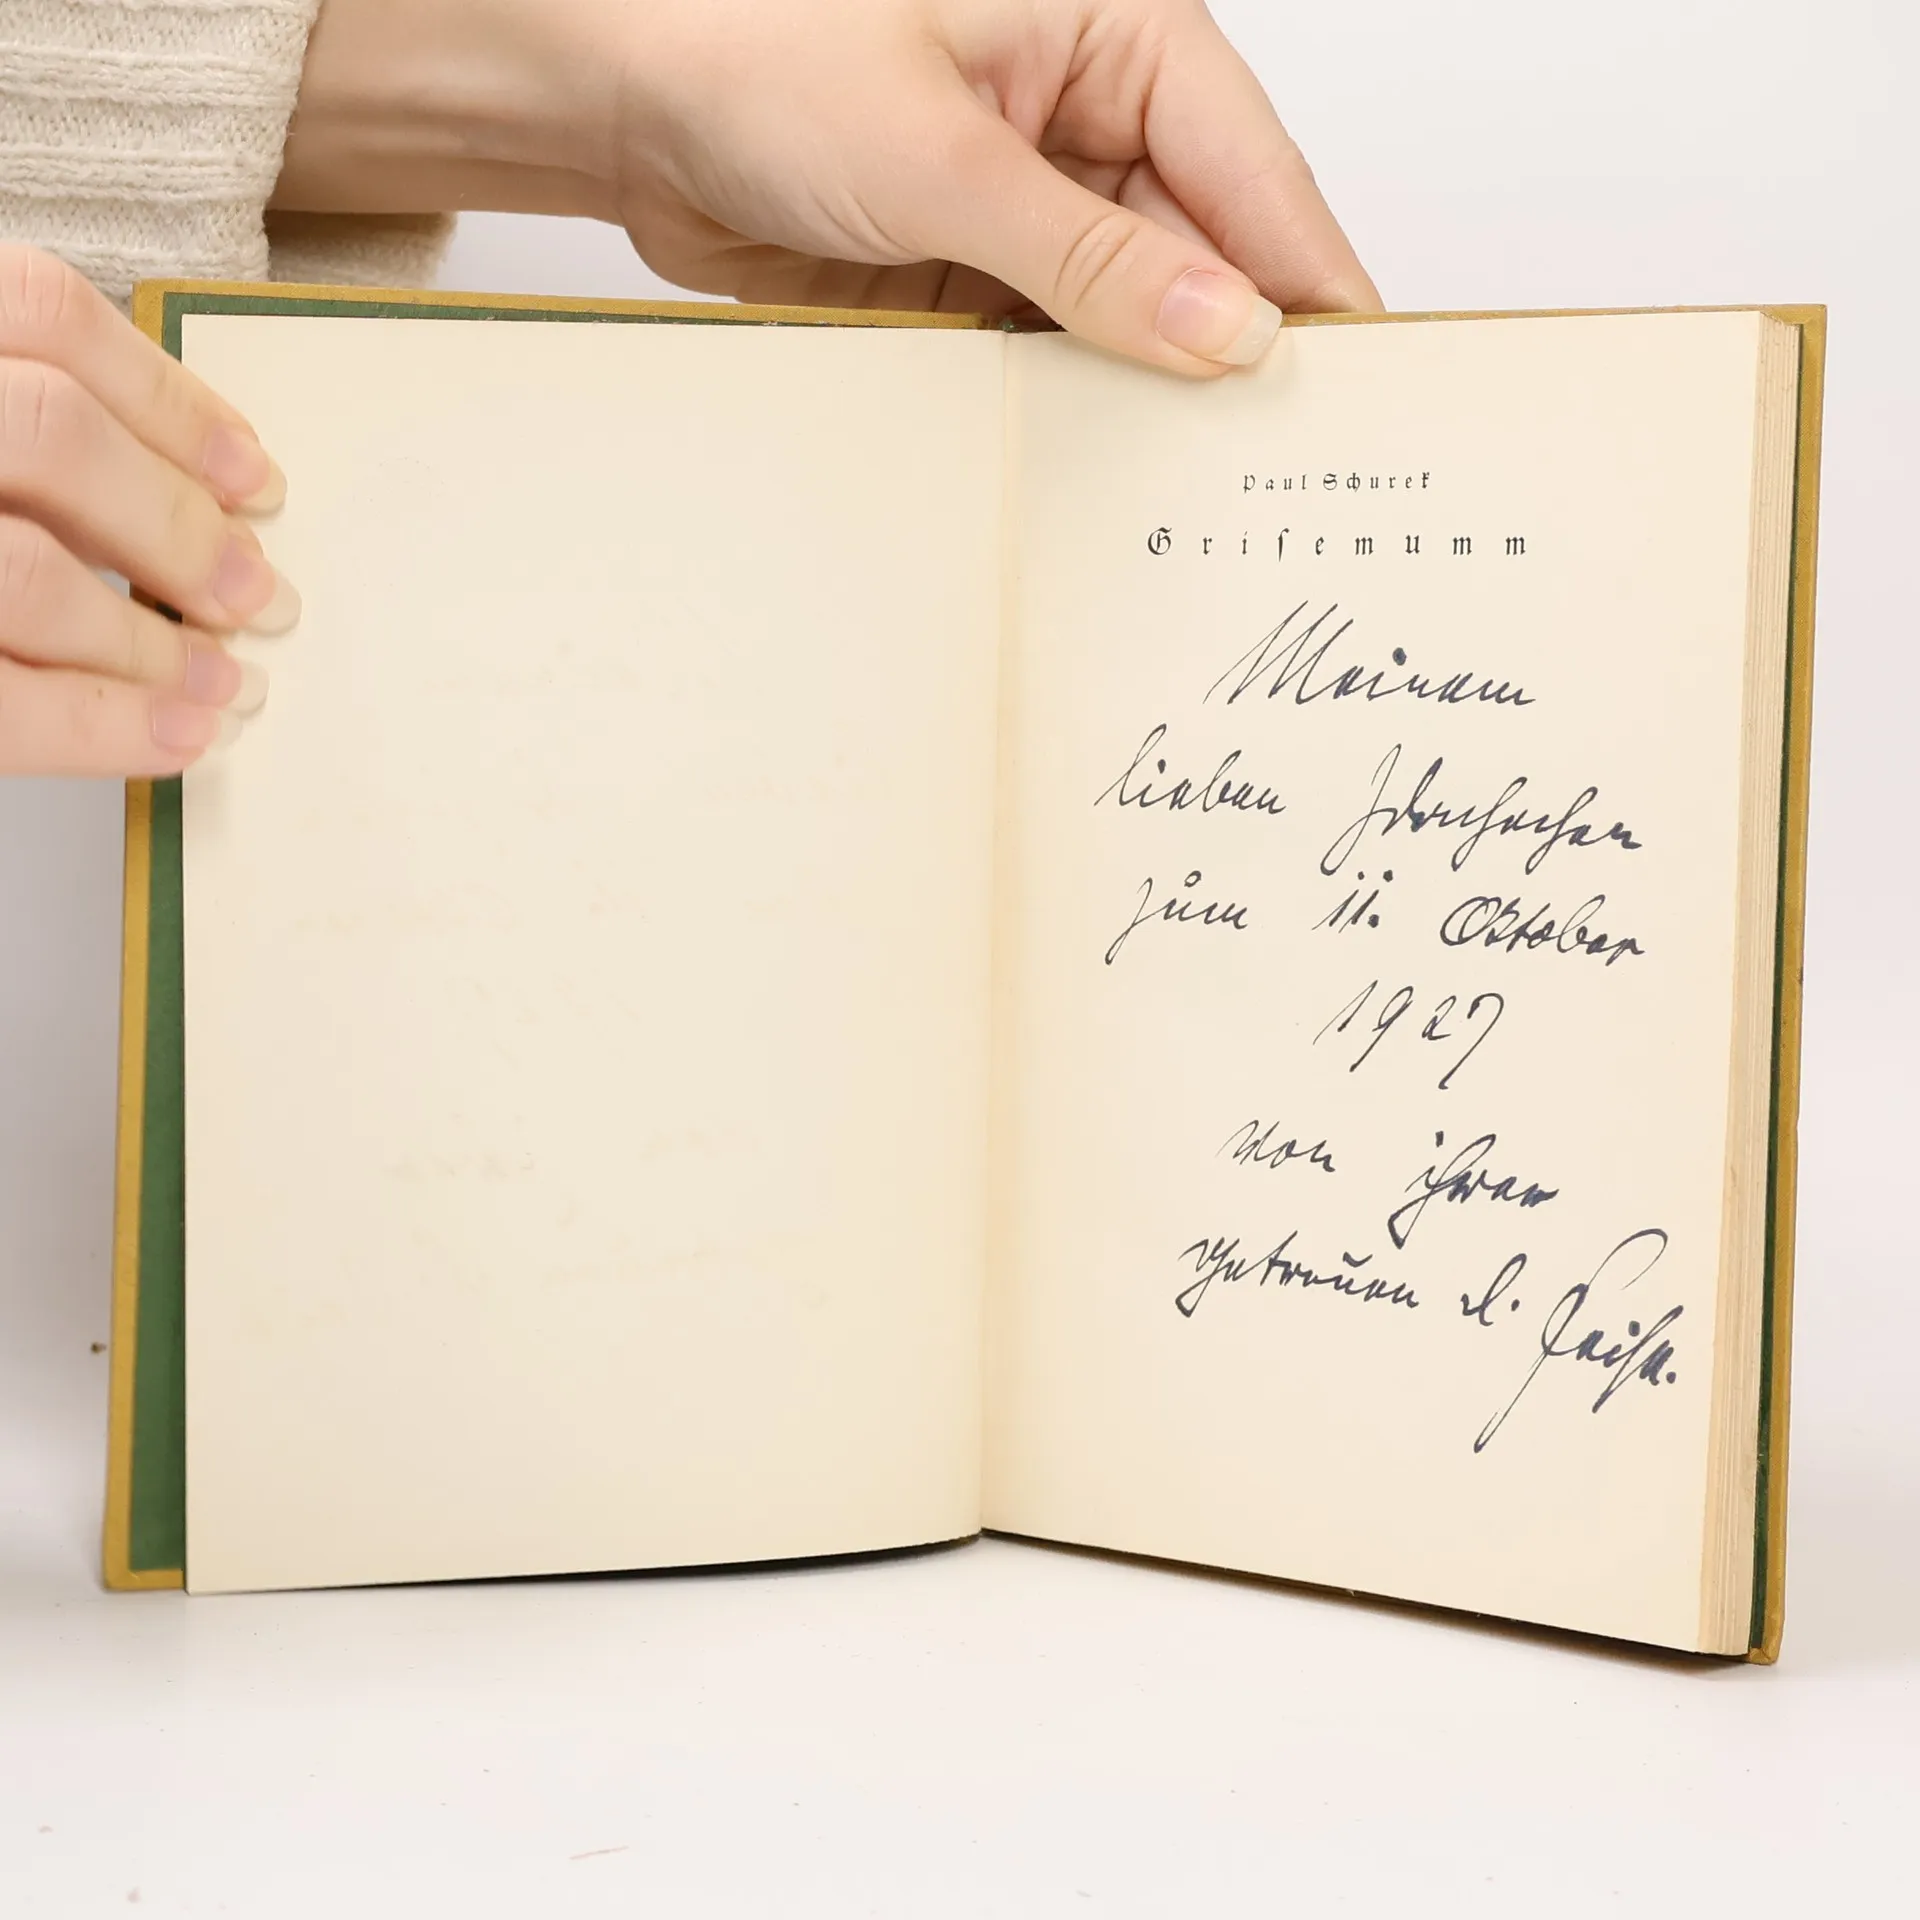 Paul Schurek
Griſemumm
Meinem
lieben
zum 11. Oktober
1927
von ihrer
getreuen L.